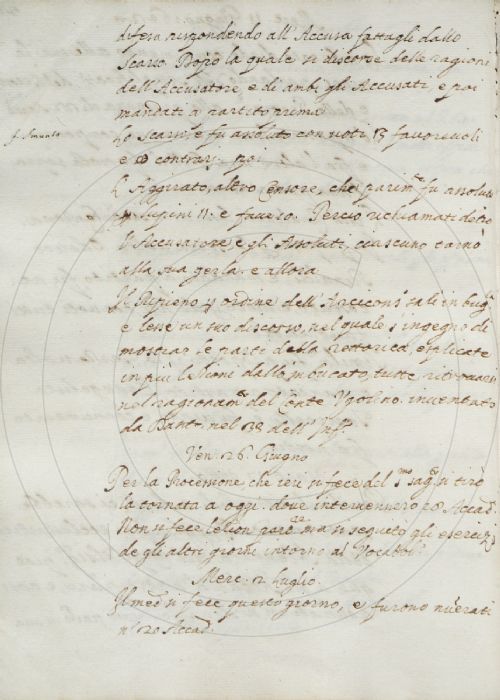 difesa rispondendo all'Accusa fattagli dallo
Scarso. Dopo la quale si discorse delle ragioni
dell'Accusatore, e di ambi gli Accusati, e poi
mandati à partito prima
Lo e fu assoluto con voti 13 favorevoli
e 8 contrarj. poi
L'Aggirato, altro Censore, che parim.te fu assoluto
p lupini 11. e fave 10. Perciò richiamati detto
l'Accusatore e gli Assoluti, ciascuno tornò
alla sua gerla. e allora
Il Ripieno p ordine dell'Arcicons.º salì in bug.ª
e lesse un suo discorso, nel quale s'ingegnò di
mostrar le parti della rettorica, esplicate
in più lezioni dallo 'mbucato, tutte ritrovarsi
nel ragionam.to del Conte Ugolino inventato
da Dante nel 33 dell'Inf.º
Ven. 26. Giugno
Per la Processione che ieri si fece del S.mo Sag.to si tirò
la tornata a oggi. dove intervennero 20. Accad.
Non si fece lezion però ma si seguitò gli esercizj
de gli altri giorni intorno al Vocabol.º
Merc. 2 Luglio.
Il med.º si fece questo giorno, e furono nu'erati
n.º 20 Accad.